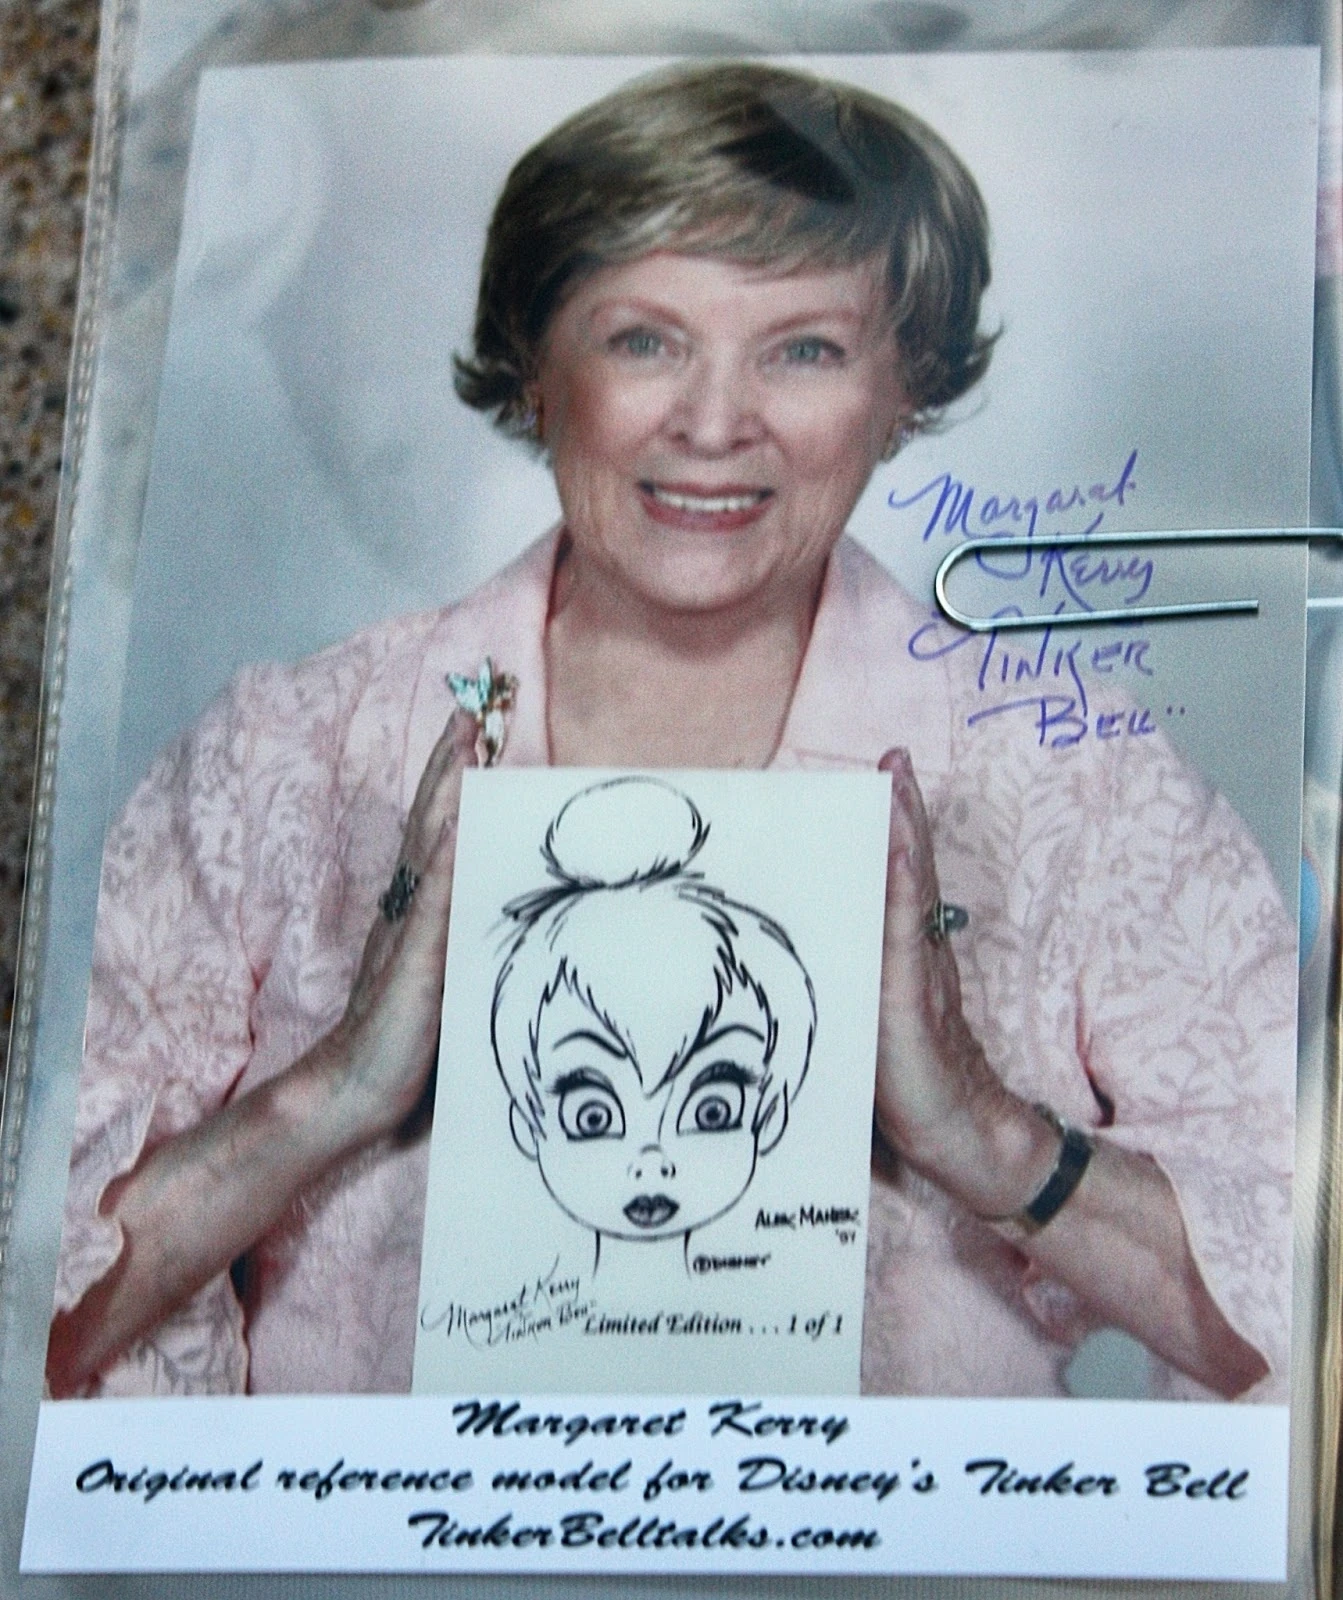 Margaret
Kerry
"TINKER
BELL"
ALEX MAHER
'04
©DISNEY
Margaret Kerry
"TINKER BELL"
Limited Edition . . . 1 of 1
Margaret Kerry
Original reference model for Disney's Tinker Bell
TinkerBelltalks.com